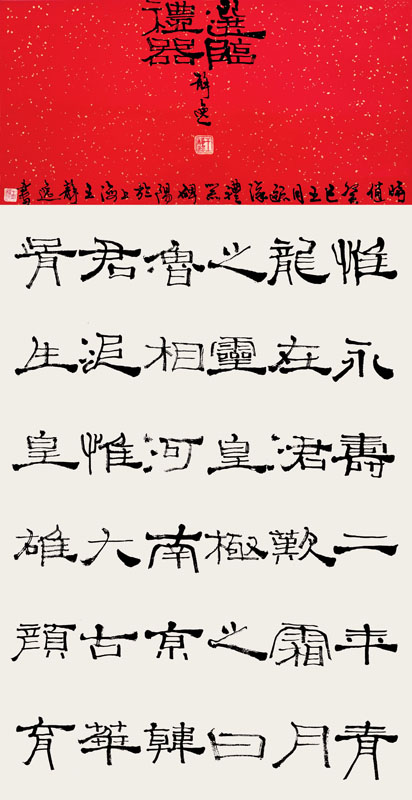 選臨
禮器
靜逸
時值癸巳五月臨漢禮器碑陽於上海王靜逸書
惟永壽二年青
龍在涒歎霜月
之靈皇極之日
魯相河南京韓
君追惟大古華
胥生皇雄顏育